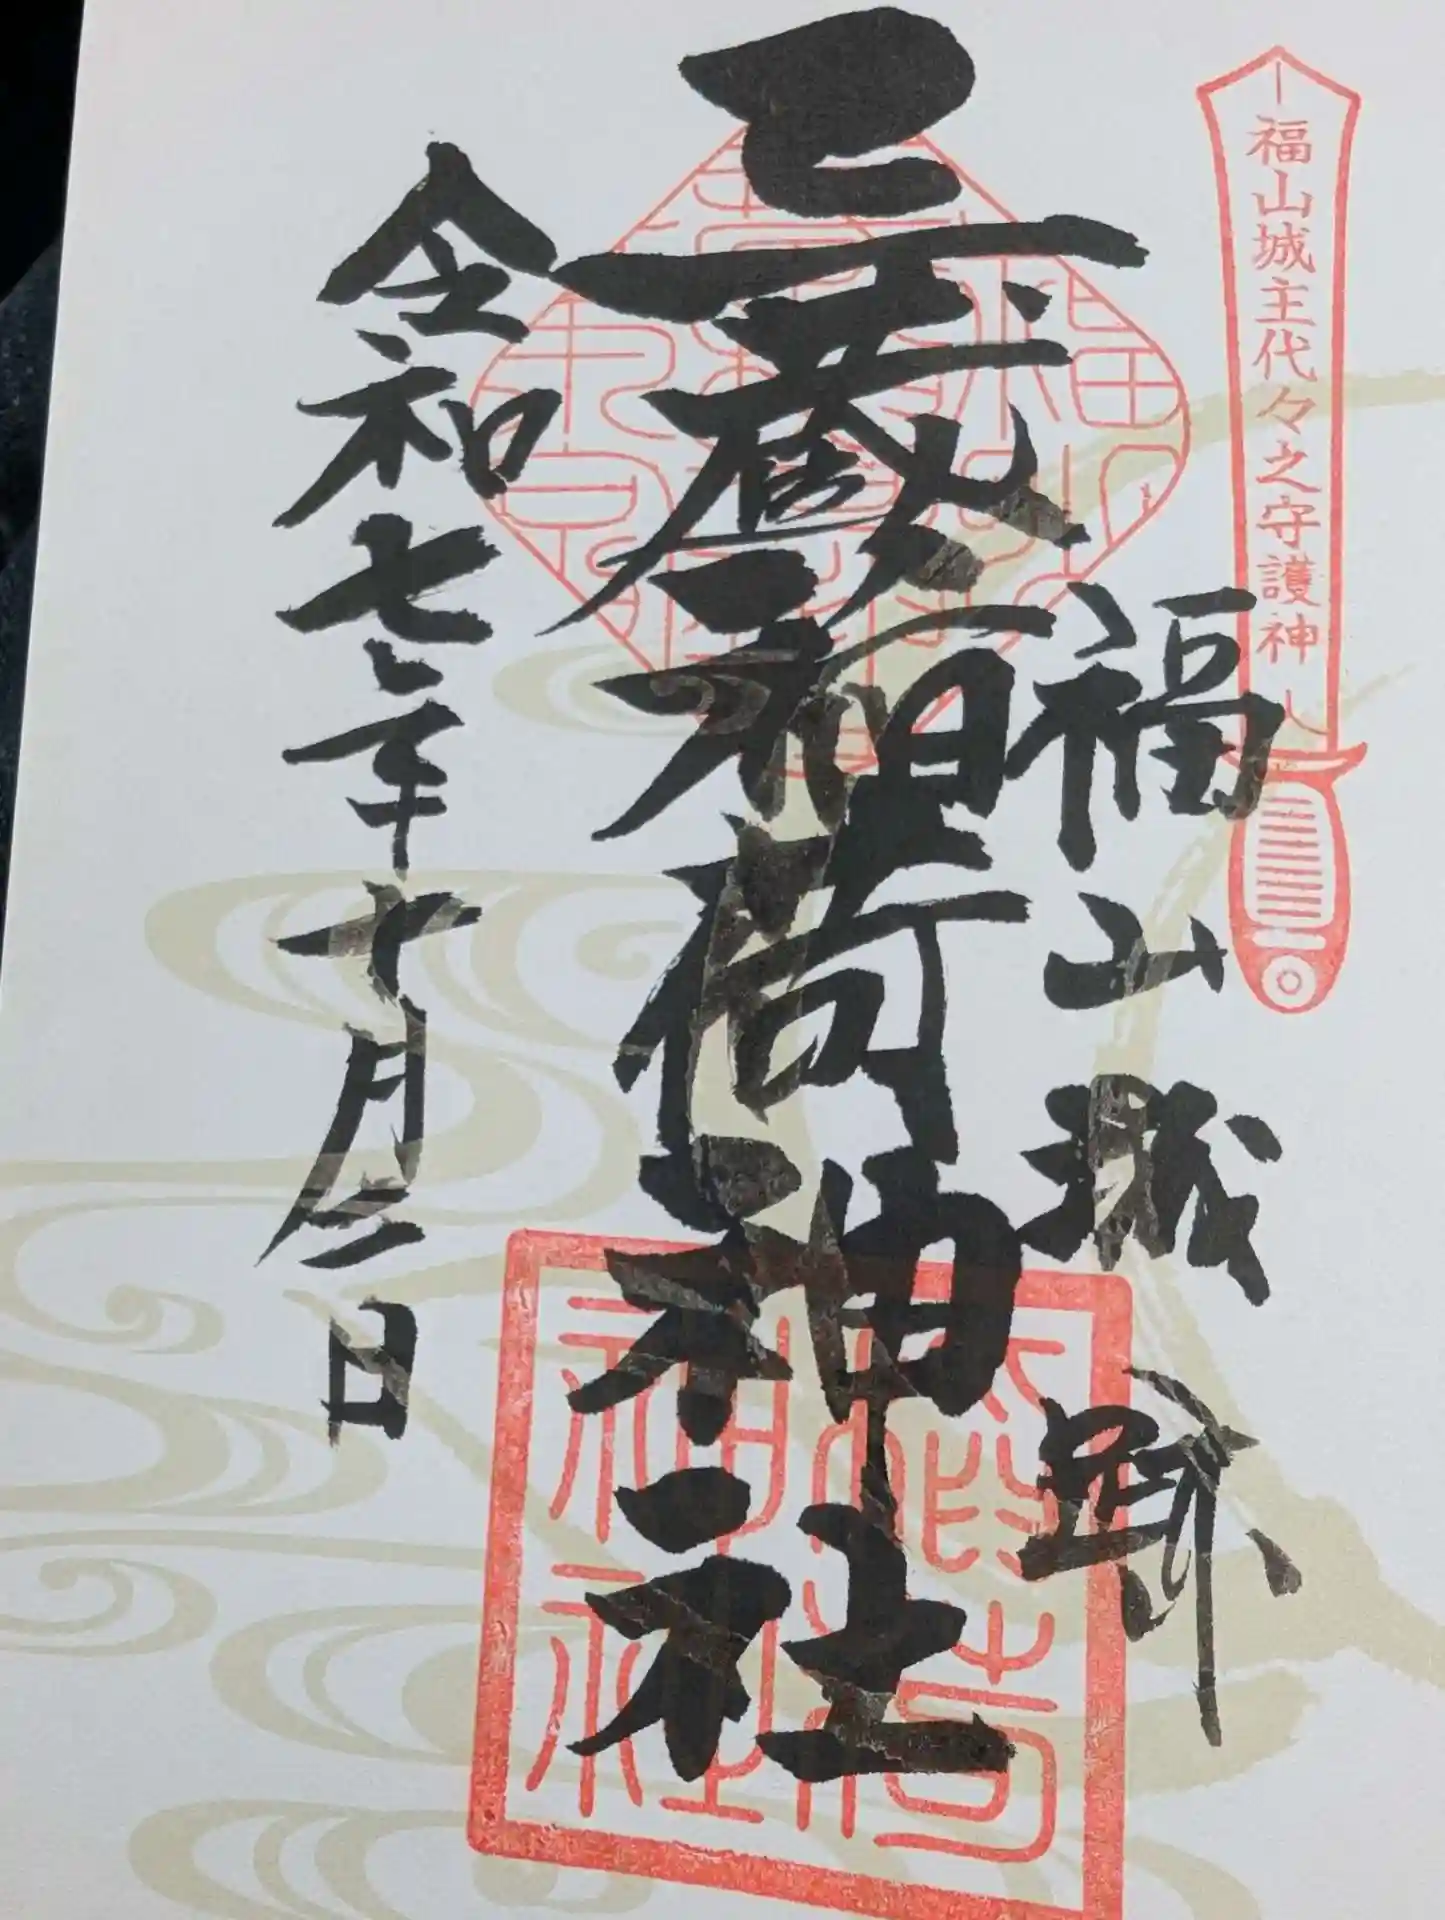 福山城主代々之守護神
福山城跡
三蔵稲荷神社
令和七年十月二日
稲荷
神社